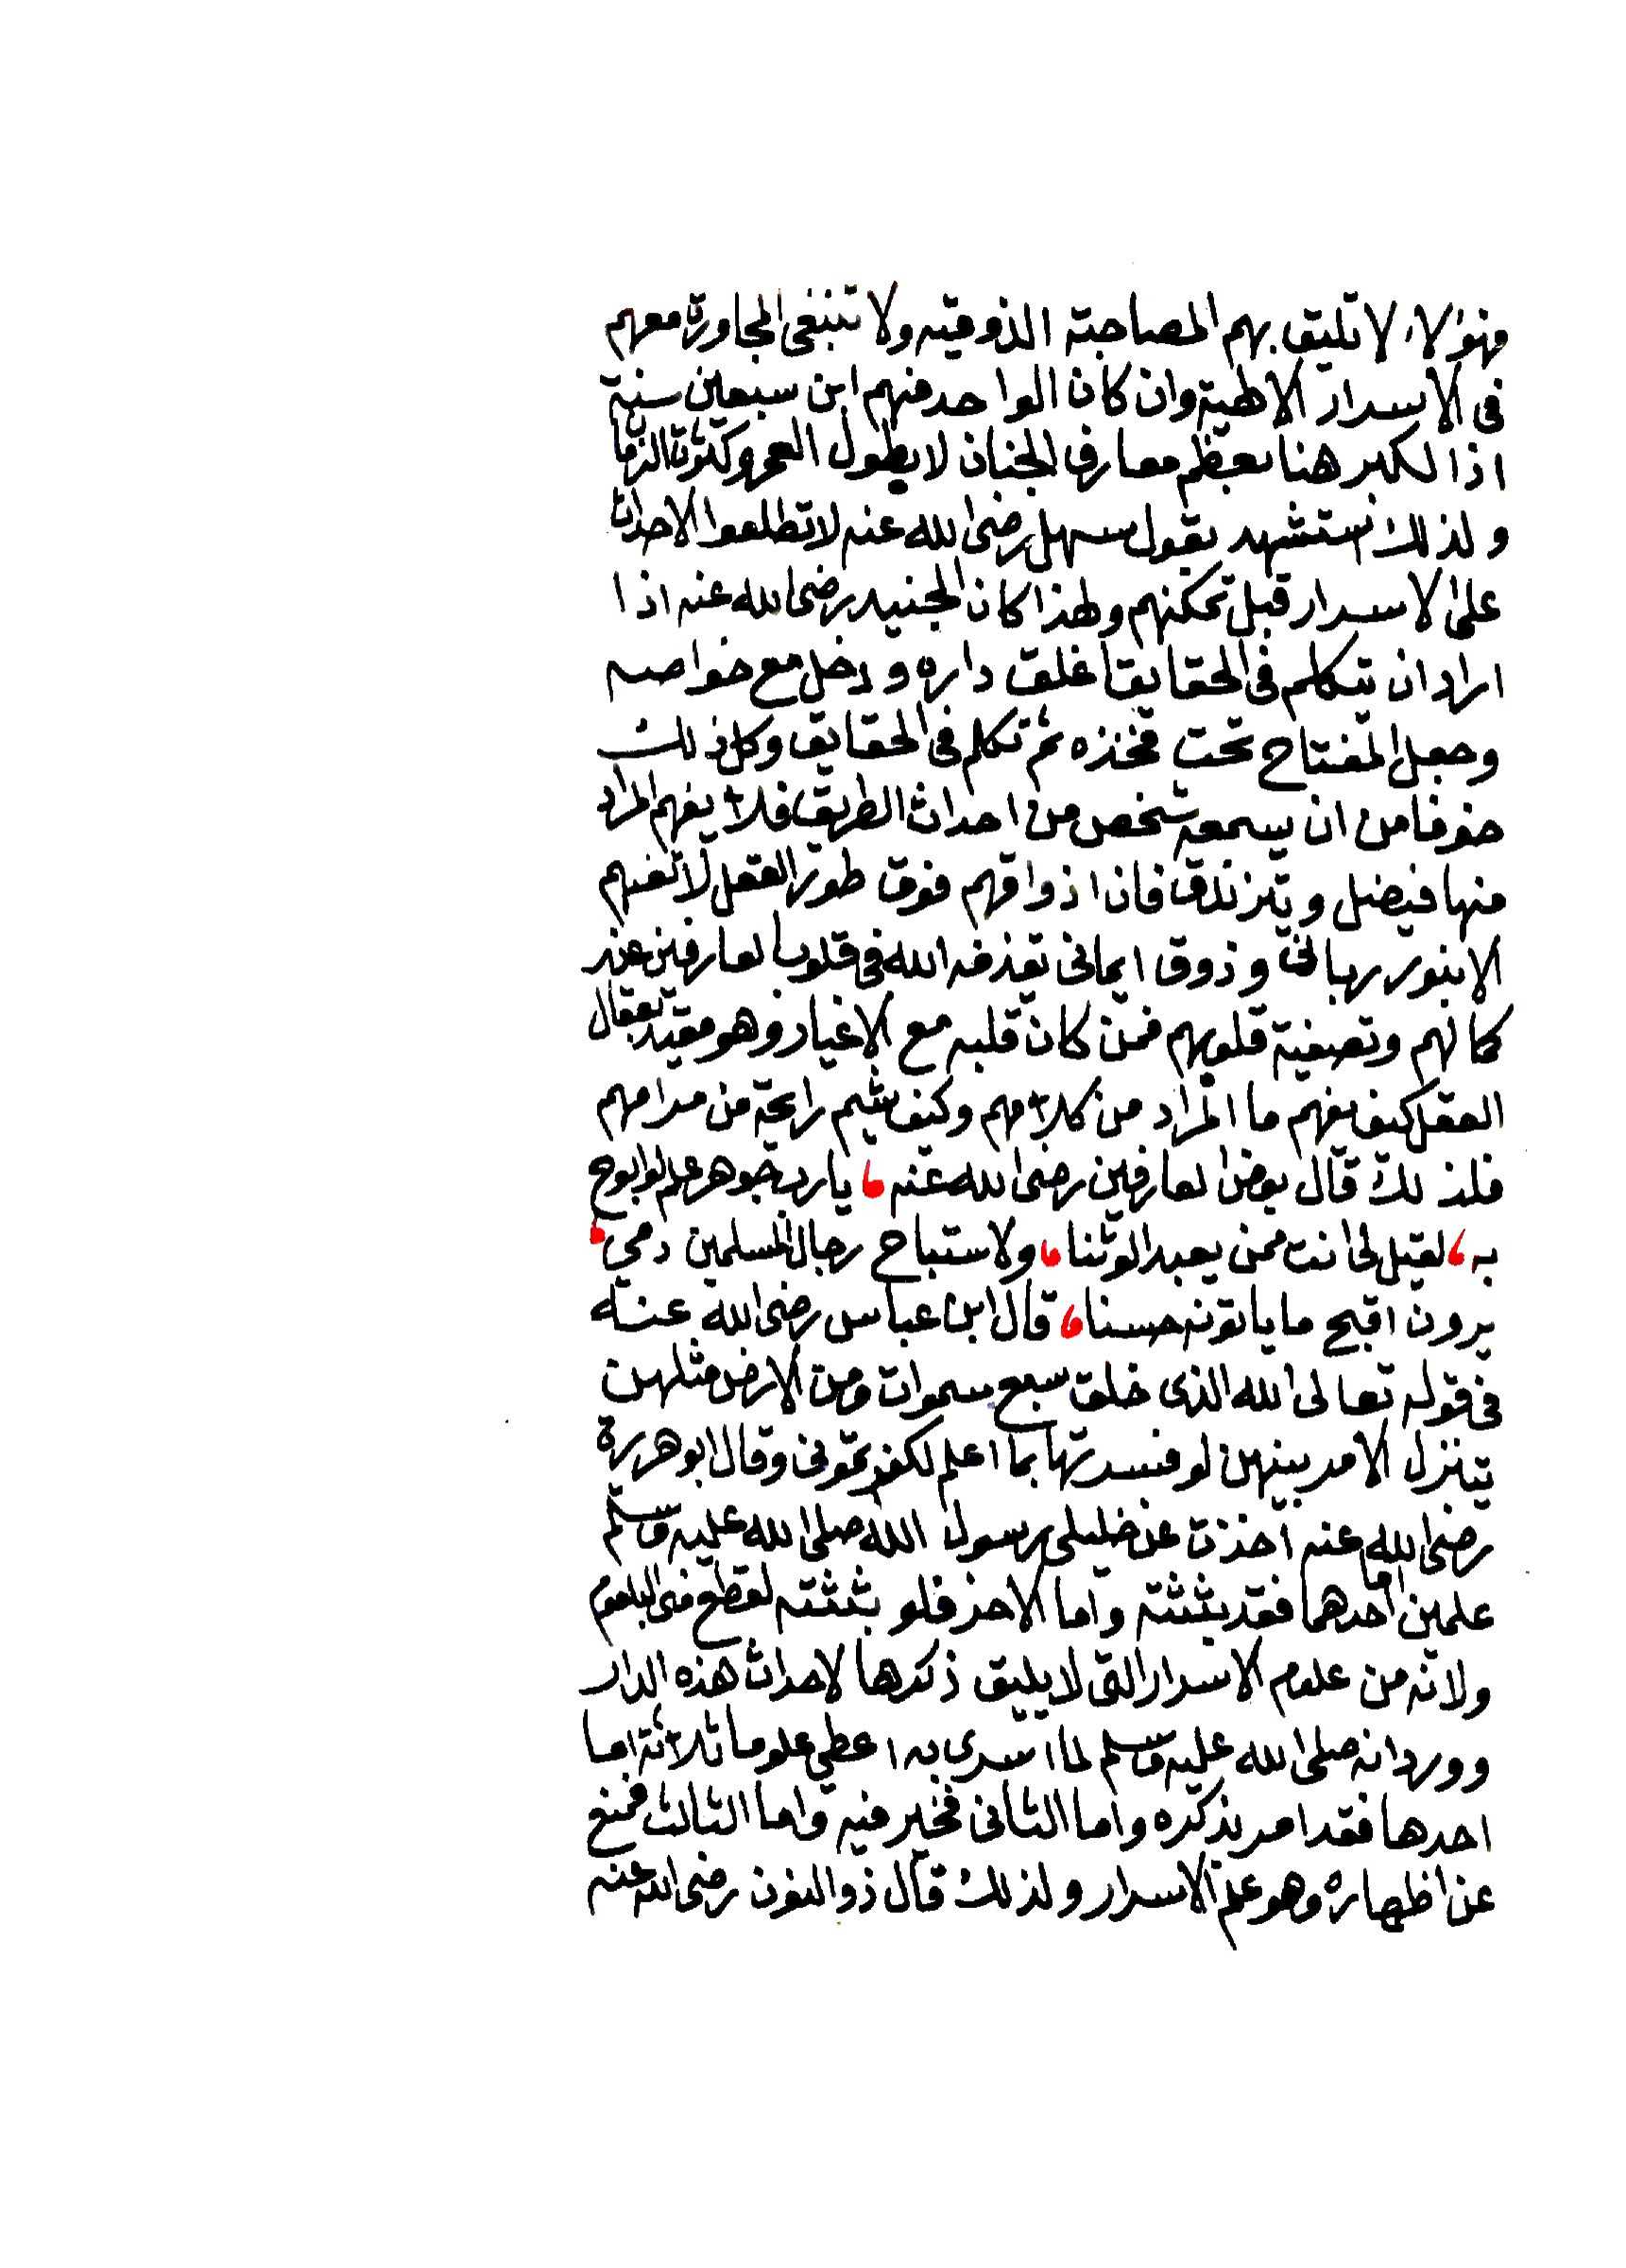 فهؤلاء لا تليق بهم المصاحبة الذوقيه ولا تنبغى المجاورة معهم
فى الاسرار الالهية وان كان الواحد منهم ابن سبعين سنة
اذ الكبر هنا بعظم معارف الجنان لا بطول العمر وكثرة الزمان
ولذلك استشهد بقول سهل رضى الله عنه لا تطلعوا الاحداث
على الاسرار قبل تمكنهم ولهذا كان الجنيد رضى الله عنه اذا
اراد ان يتكلم فى الحقايق اغلق داره ودخل مع خواصه
وجعل المفتاح تحت فخذه ثم تكلم فى الحقايق وكل ذلك
خوفا من ان يسمعه شخص من احداث الطريق فلا يفهم المراد
منها فيضل ويتزندق فان اذواقهم فوق طور العقل لا تفهم
الا بنور ربانى وذوق ايمانى تقذفه الله فى قلوب العارفين عند
كمالهم وتصفية قلوبهم فمن كان قلبه مع الاغيار وهو مقيد بعقال
العقل كيف يفهم ما المراد من كلامهم وكيف يشم رايحة من مدامهم
فلذلك قال بعض العارفين رضى الله عنه ، يا رب جوهر علم لو ابوح
به ، لقيل لى انت ممن يعبد الوثنا ، ولاستباح رجال المسلمين دمى ،
يرون اقبح ما ياتونه حسنا ، قال ابن عباس رضى الله عنه
فى قوله تعالى الله الذى خلق سبع سموات ومن الارض مثلهن
يتنزل الامر بينهن لو فسرتها بما اعلم لكفرتمونى وقال ابو هريرة
رضى الله عنه اخذت عن خليلى رسول الله صلى الله عليه وسلم
علمين اما احدهما فقد بثثته واما الاخر فلو بثثته لقطع منى البلعوم
ولانه من علوم الاسرار التى لا يليق ذكرها لاحداث هذه الدار
وورد انه صلى الله عليه وسلم لما اسرى به اعطى علوما ثلاثة اما
احدها فقد امر بذكره واما الثانى فخير فيه واما الثالث فمنع
عن اظهاره وهو علم الاسرار ولذلك قال ذو النون رضى الله عنه